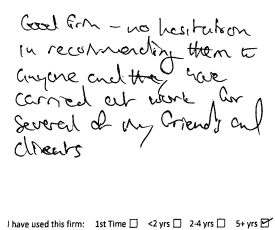 Good firm - no hesitation
in recommending them to
anyone and they have
carried out work for
several of my friends and
clients
I have used this firm: 1st Time ☐ <2 yrs ☐ 2-4 yrs ☐ 5+ yrs ☑